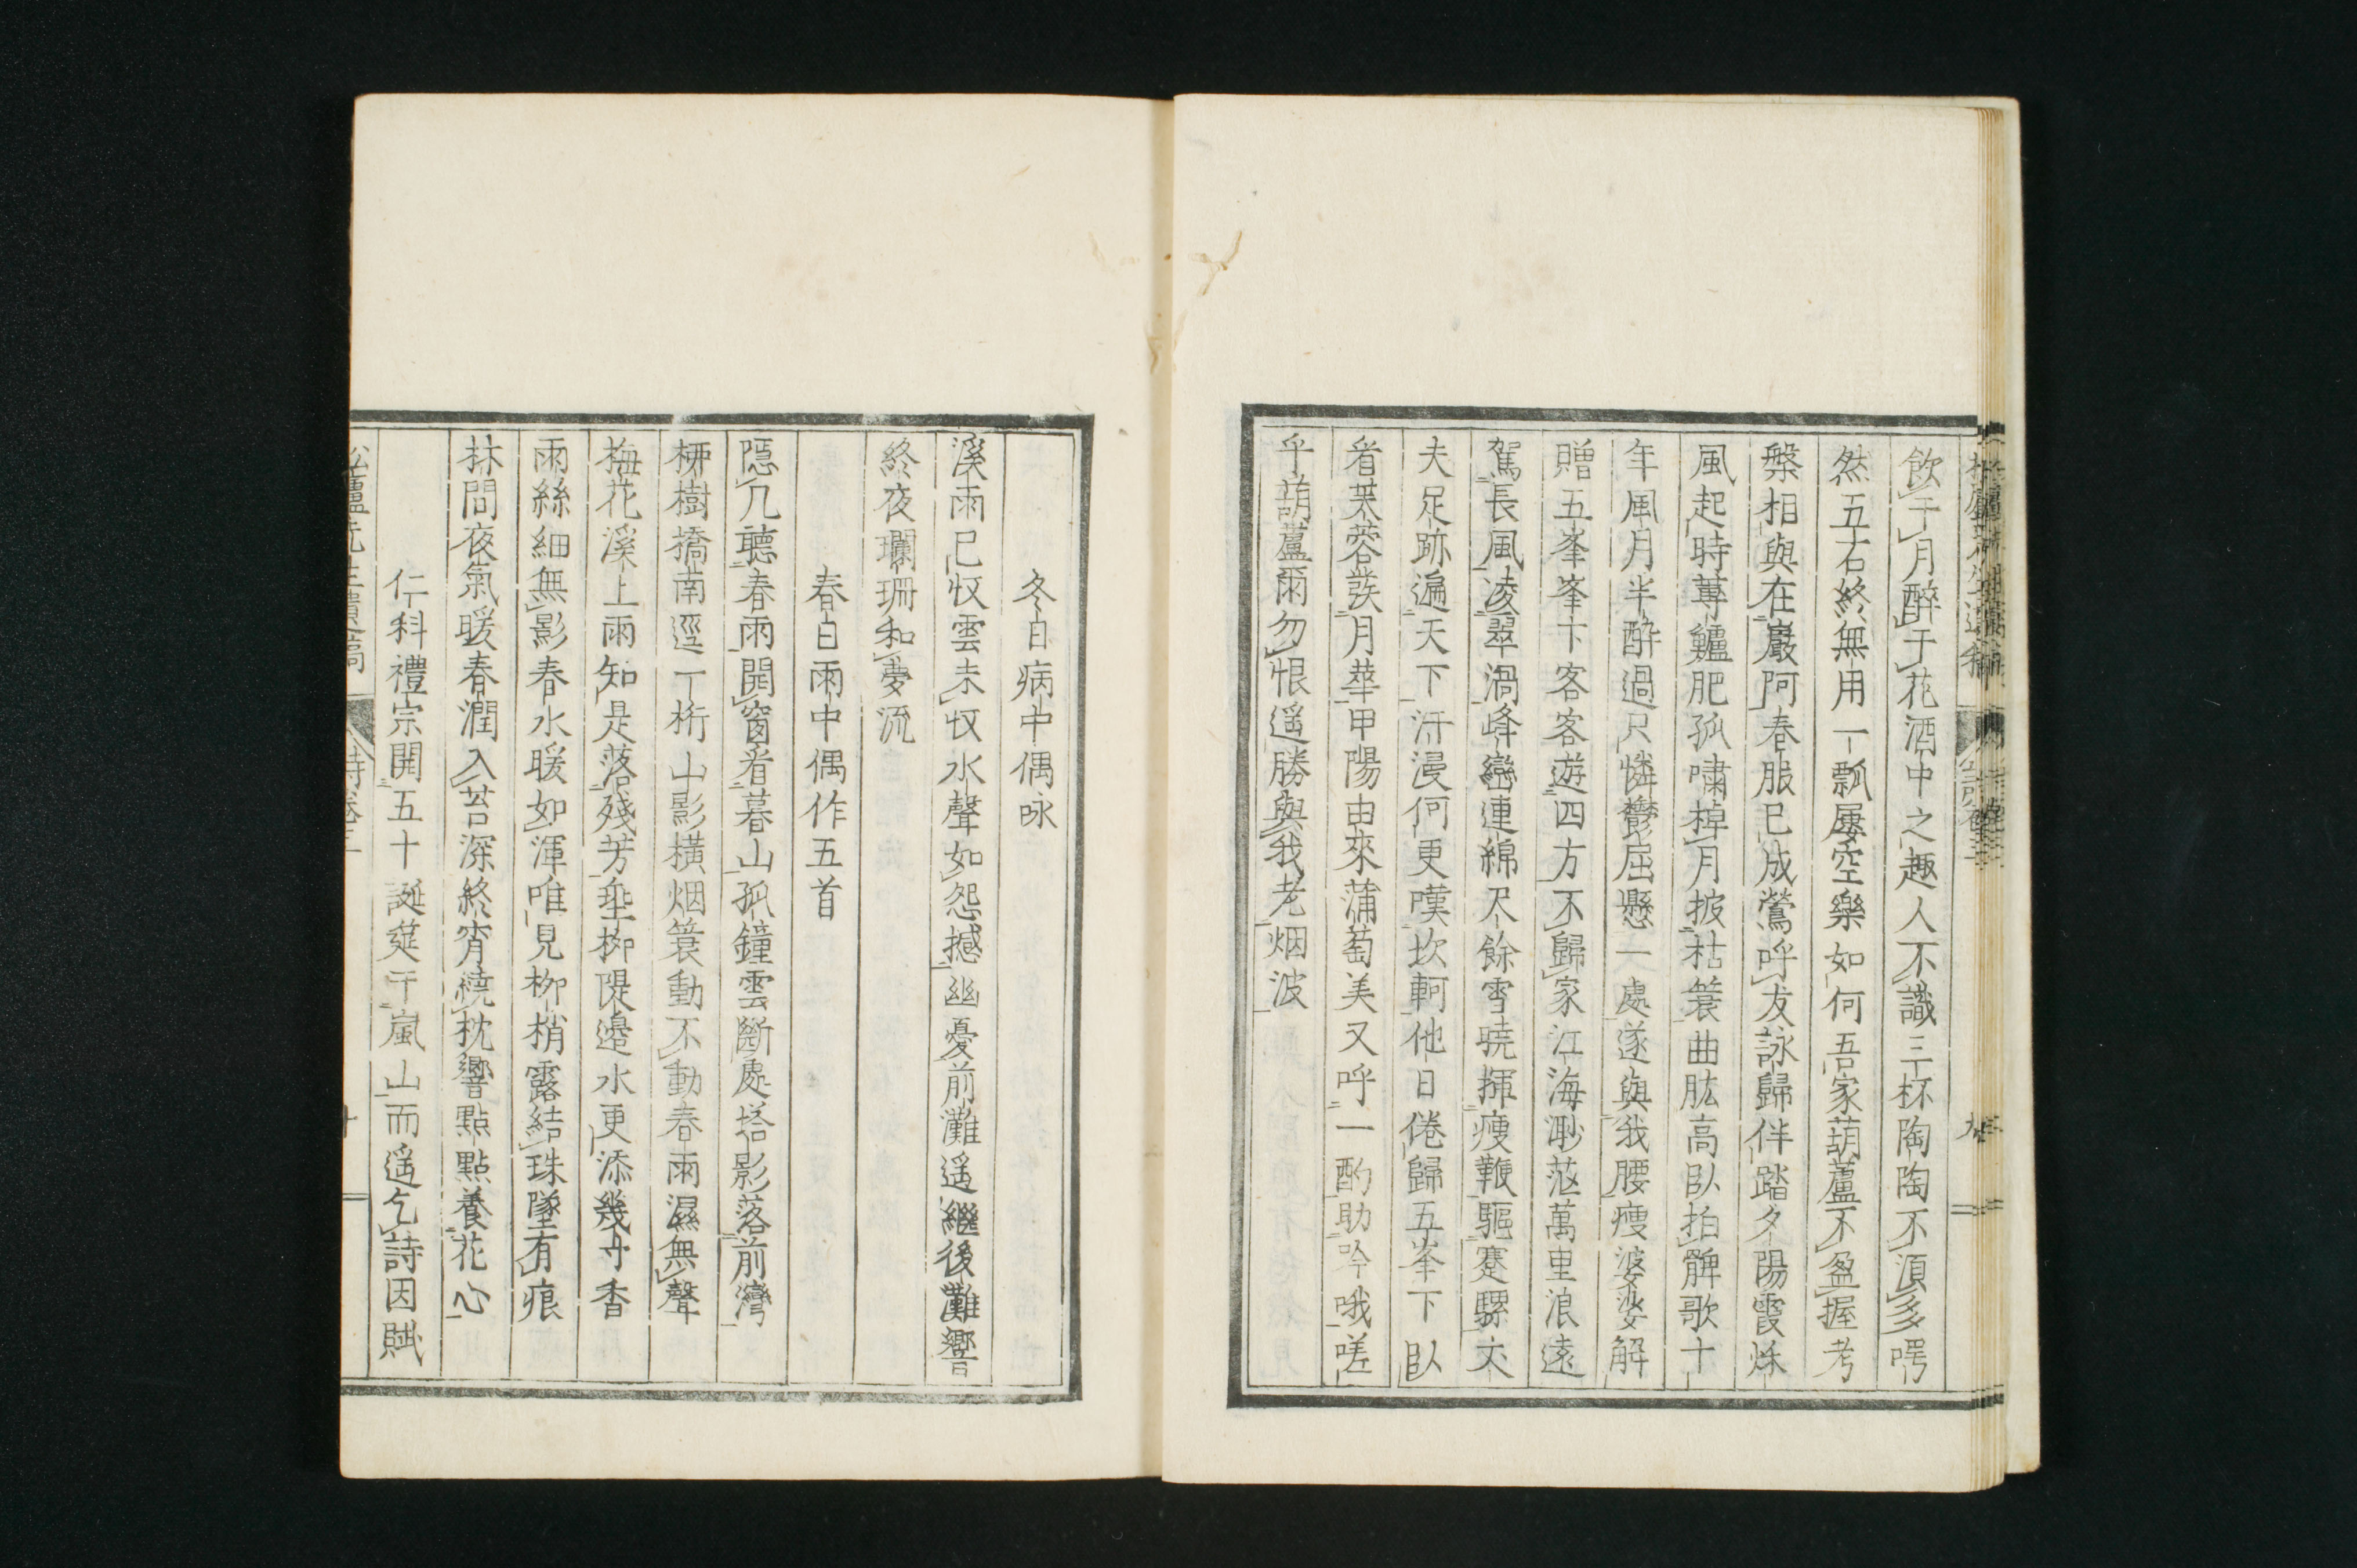 飲于月醉于花酒中之趣人不識三杯陶陶不須多噐
然五石終無用一瓢屢空樂如何吾家葫蘆不盈握考
槃相與在巖阿春服已成鶯呼友詠歸伴踏夕陽霞秌
風起時蓴鱸肥孤嘯棹月披枯簑曲肱高臥拍髀歌十
年風月半酔過只憐鬱屈懸一處遂與我腰瘦婆娑解
贈五峯峯下客客遊四方不歸家江海渺茫萬里浪遠
駕長風凌翠渦峰巒連綿尺餘雪曉揮瘦鞭驅蹇騾大
夫足跡遍天下汗漫何更嘆坎軻他日倦歸五峯下臥
看芙蓉發月華甲陽由來蒲萄美又呼一酌助吟哦嗟
乎葫蘆爾勿恨遥勝與我老烟波
冬日病中偶咏
溪雨已收雲未收水聲如怨撼幽憂前灘遥繼後灘響
終夜瓓珊和夢流
春日雨中偶作五首
隱几聽春雨開窗看暮山孤鐘雲斷處塔影落前灣
栁樹橋南逕一桁山影橫烟簑動不動春雨濕無聲
梅花溪上雨知是落殘芳垂柳隄邊水更添幾寸香
雨絲細無影春水暖如渾唯見柳梢露結珠墜有痕
林間夜氣暖春潤入苔深終宵繞枕響點點養花心
仁科禮宗開五十誕筵于嵐山而遥乞詩因賦